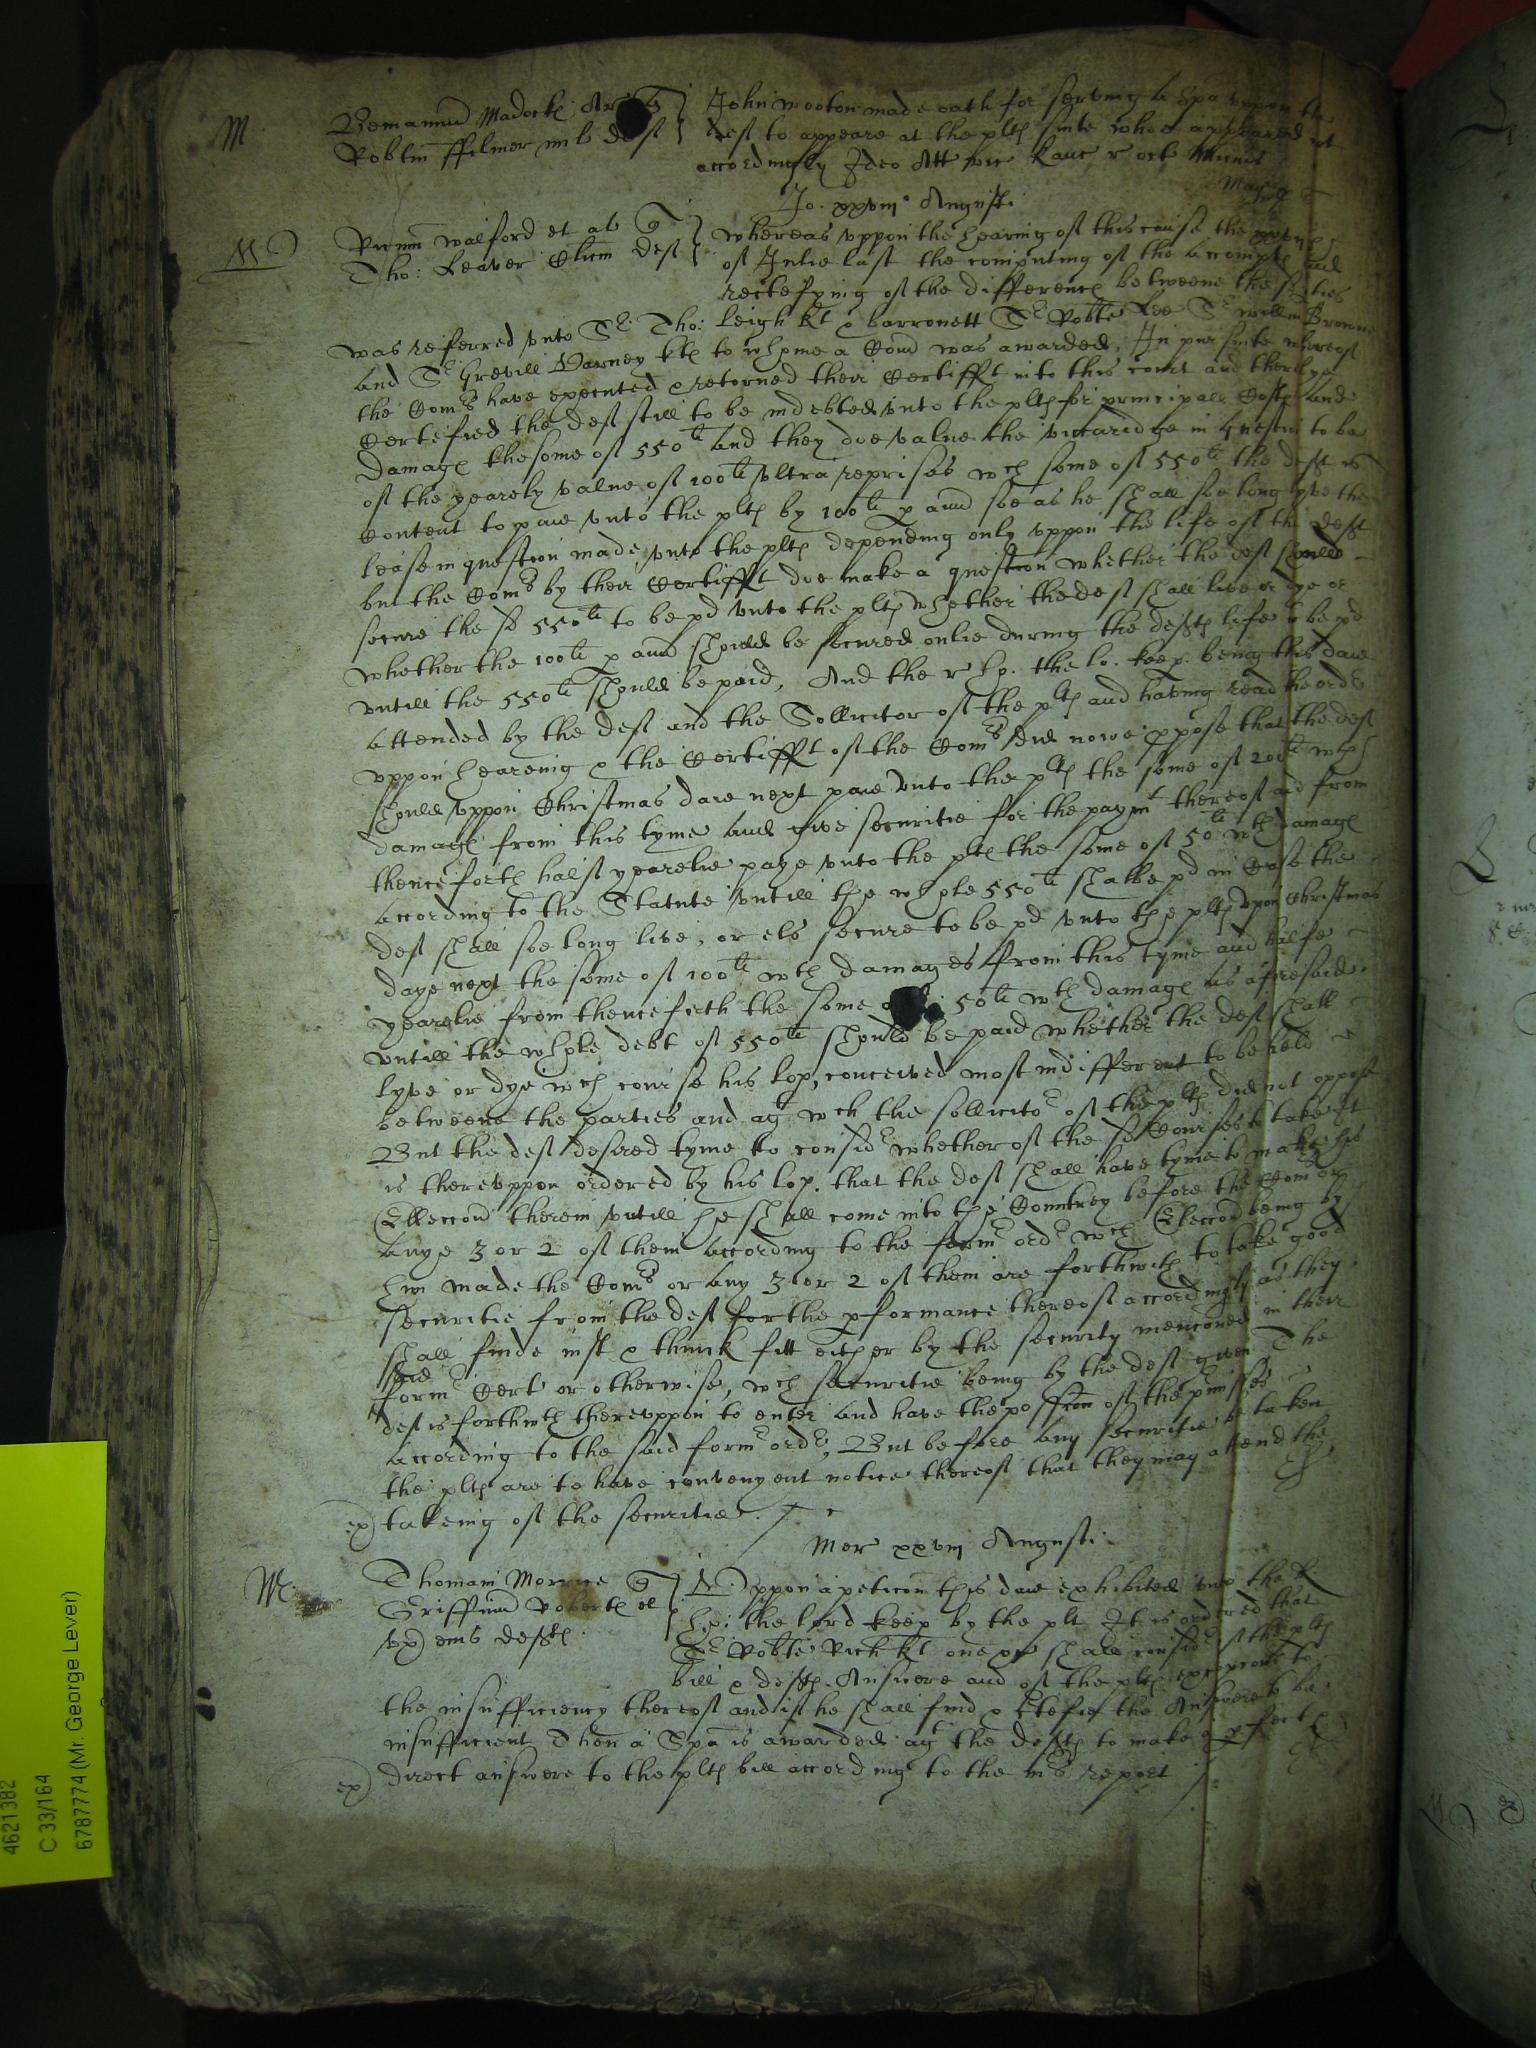 M
Beniamin Madock Ar q
Robtm ffilmer mil deft
John Wooton made oath for serving a Spa uppon the
deft to appeare at the plts suite whoe appeared not
accordingly Ideo Att vic Kanc r oct Michis
Jo. xxviij° Augusti
Vicum Walford et al q
Tho: Leaver Clicm deft
Whereas uppon the hearing of this cause the
of Julie last the computing of the accompts and
rectefying of the differences betweene the parties
was referred unto Sr. Tho: Leigh kt & barronett Sr Robte Lee Sr Willm Browne
and Sr Grevill Varney kts to whome a Com was awarded, In pursuite whereof
the Coms have executed & retorned their Certifft into this court and therby
Certefied the deft still to be indebted unto the plts for principall Costs and
damages the some of 550li And they doe value the viccaridge in questn to be
of the yearely value of 100li ultra reprises wch some of 550li the deft is
content to paie unto the plts by 100li p ann soe as he shall soe long lyve the
lease in question made unto the plts depending only uppon the life of the deft
but the Coms by their Certifft doe make a question whether the deft should
secure the sd 550li to be pd unto the plts whether the deft shall live or dye or
whether the 100li p ann should be secured onlie during the defts life to be pd
untill the 550li should be paid, And the r ho. the lo. keep. being this daie
attended by the deft and the Sollicitor of the plts and having read the ordr
uppon hearing & the Certifft of the Coms did nowe ppose that the deft
should uppon Christmas daie next paie unto the plts the some of 200li wth
damages from this tyme and give securitie for the paymt thereof and from
thenceforth half yearelie paye unto the plts the some of 50li wth damages
according to the Statute untill the whole 550li shalbe pd in Case the
deft shall soe long live, or els secure to be pd unto the plts upon Christmas
daye next the some of 100li wth damages from this tyme and halfe
yearelie from thenceforth the some of 50li wth damages as aforesaid
untill the whole debt of 550li should be paid whether the deft shall
lyve or dye wch course his lop, conceived most indifferent to be held
betweene the parties and agt wch the sollicitor of the plts did not oppose
But the deft desired tyme to considr whether of the sd Courses to take It
is thereuppon ordered by his lop. that the deft shall have tyme to make his
Ellecon therein untill he shall come into the Countrey before the Comrs or
anye 3 or 2 of them according to the formr ordr wch Eleccon being by
him made the Coms or any 3 or 2 of them are forthwth to take good
securitie from the deft for the pformance thereof accordingly as they
shall finde iust & thinck fitt either by the security mencioned in their
said
formr Cert or otherwise, wch securitie being by the deft given The
deft is forthwth thereuppon to enter and have the posscon of the prmisses
according to the said formr ordr, But before any securitie be taken
the plts are to have convenyent notice thereof that they may attend the
ex) takeing of the securitie.
Mer xxviij Augusti
M
Thomam Morrice q
Griffinu Roberts et
ux) eius defts
Uppon a peticon this daie exhibited unto the R.
ho: the lord keep by the plt It is ordered that
Sr Robte Rich kt one &c shall considr of the plts
bill & defts Answere and of the plts excepcons to
the insufficiency thereof and if he shall find & ctefie the Answere to be
insufficient Then a Spa is awarded agt the defts to make a pfect &
ex) direct answere to the plts bill according to the mrs report
4621382
C 33/164
6787774 (Mr. George Lever)